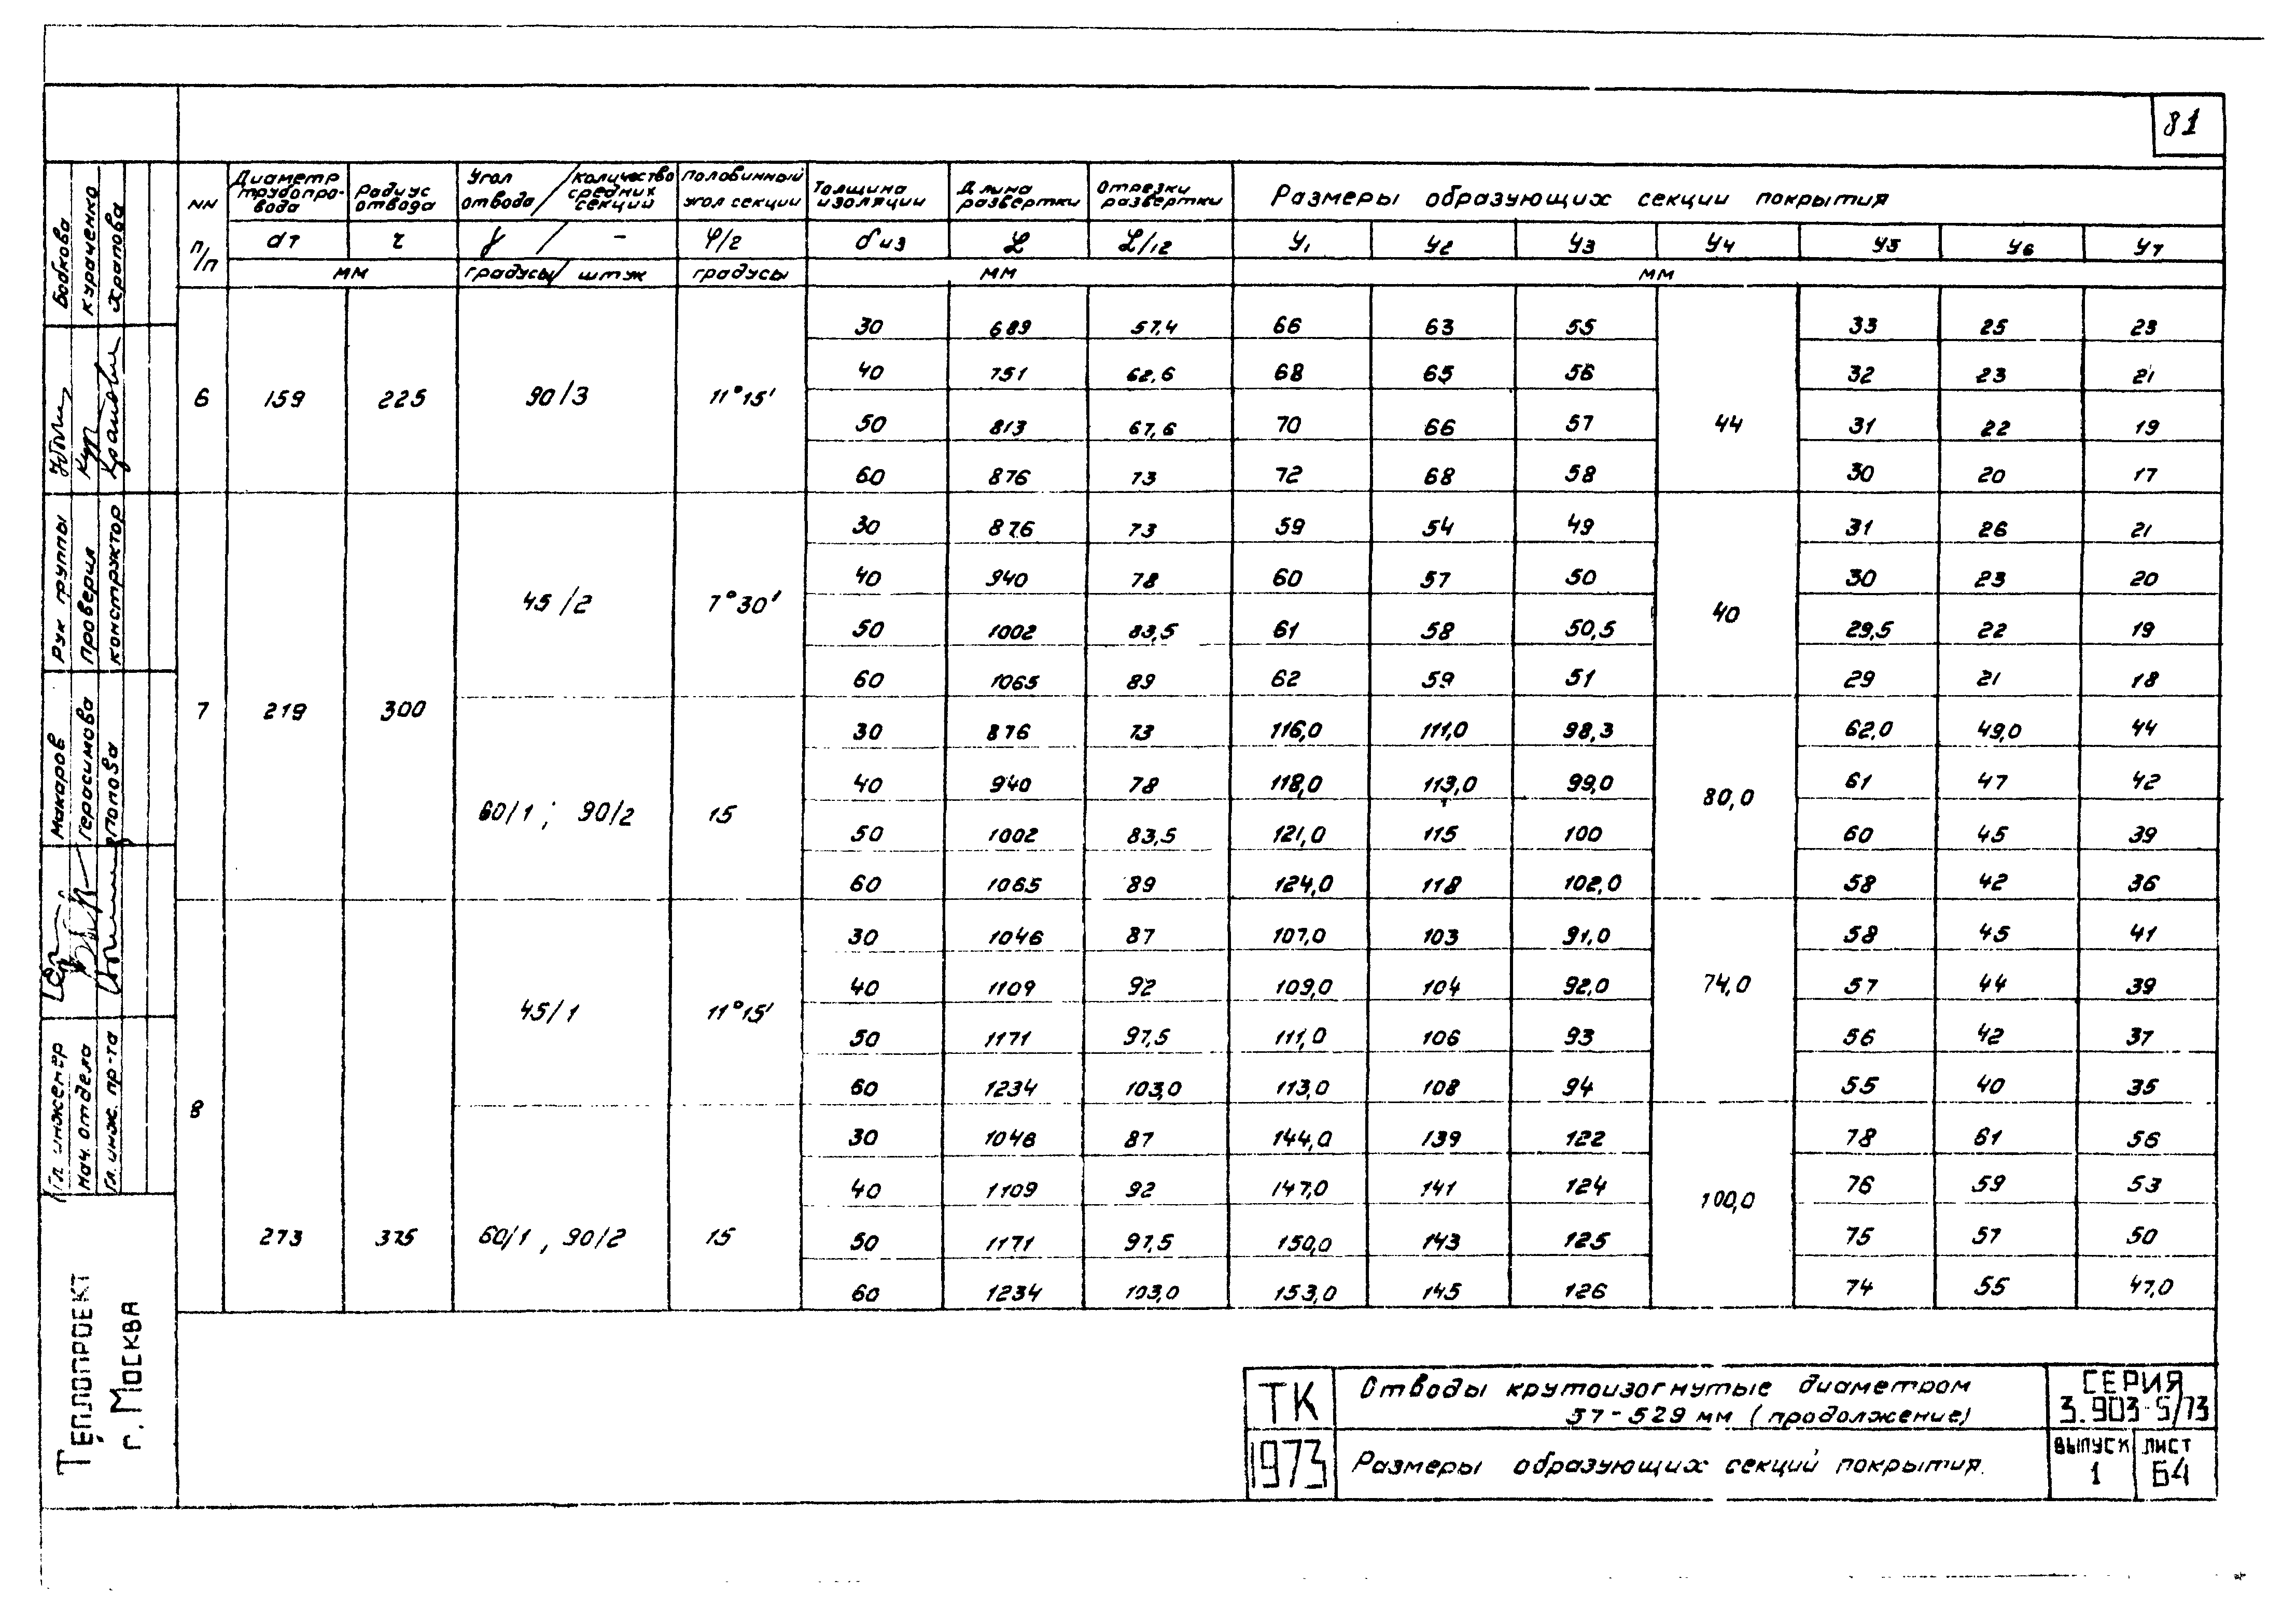 81
NN п/п
Диаметр трубопровода
Радиус отвода
Угол отвода / количество средних секций
половинный угол секции
Толщина изоляции
Длина развертки
Отрезки развертки
Размеры образующих секции покрытия
dт r γ / - φ/2 δиз L L/12 y1 y2 y3 y4 y5 y6 y7
мм градусы / штук градусы мм мм
6 159 225 90/3 11°15' 44
30 689 57,4 66 63 55 33 25 23
40 751 62,6 68 65 56 32 23 21
50 813 67,6 70 66 57 31 22 19
60 876 73 72 68 58 30 20 17
7 219 300
45/2 7°30' 40
30 876 73 59 54 49 31 26 21
40 940 78 60 57 50 30 23 20
50 1002 83,5 61 58 50,5 29,5 22 19
60 1065 89 62 59 51 29 21 18
60/1 ; 90/2 15 80,0
30 876 73 116,0 111,0 98,3 62,0 49,0 44
40 940 78 118,0 113,0 99,0 61 47 42
50 1002 83,5 121,0 115 100 60 45 39
60 1065 89 124,0 118 102,0 58 42 36
8 273 375
45/1 11°15' 74,0
30 1046 87 107,0 103 91,0 58 45 41
40 1109 92 109,0 104 92,0 57 44 39
50 1171 97,5 111,0 106 93 56 42 37
60 1234 103,0 113,0 108 94 55 40 35
60/1 , 90/2 15 100,0
30 1046 87 144,0 139 122 78 61 56
40 1109 92 147,0 141 124 76 59 53
50 1171 97,5 150,0 143 125 75 57 50
60 1234 103,0 153,0 145 126 74 55 47,0
Бобкова
Кураченко
Храпова
Рук группы
Проверил
конструктор
Макаров
Герасимова
Гл. инженер
Нач. отдела
Гл. инж. пр-та
Теплопроект
г. Москва
ТК
1973
Отводы крутоизогнутые диаметром
57-529 мм (продолжение)
Размеры образующих секций покрытия.
СЕРИЯ
3.903-5/73
выпуск
1
лист
64